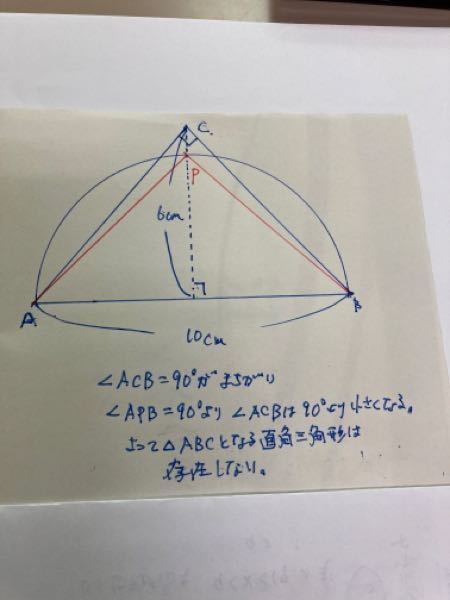 C.
P
6cm
A
B
10cm
∠ACB=90°がまちがい
∠APB=90°より∠ACBは90°より小さくなる。
よって△ABCとなる直角三角形は
存在しない。